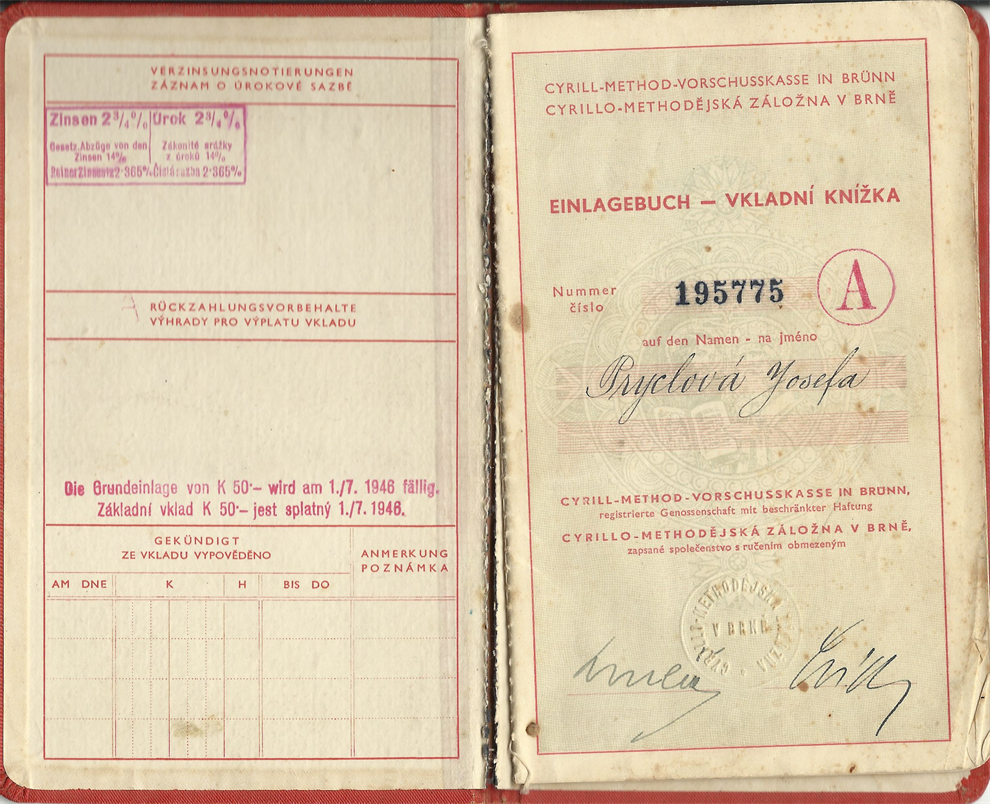 VERZINSUNGSNOTIERUNGEN
ZÁZNAM O ÚROKOVÉ SAZBĚ
Zinsen 2¾% Úrok 2¾%
Gesetz. Abzüge von den Zákonité srážky
Zinsen 14% z úroků 14%
Reiner Zinssatz 2·365% Čistá sazba 2·365%
A RÜCKZAHLUNGSVORBEHALTE
VÝHRADY PRO VÝPLATU VKLADU
Die Grundeinlage von K 50·– wird am 1./7. 1946 fällig.
Základní vklad K 50·– jest splatný 1./7. 1946.
GEKÜNDIGT
ZE VKLADU VYPOVĚDĚNO
ANMERKUNG
POZNÁMKA
AM DNE K H BIS DO
CYRILL-METHOD-VORSCHUSSKASSE IN BRÜNN
CYRILLO-METHODĚJSKÁ ZÁLOŽNA V BRNĚ
EINLAGEBUCH – VKLADNÍ KNÍŽKA
Nummer
číslo
195775
A
auf den Namen - na jméno
Pryclová Josefa
CYRILL-METHOD-VORSCHUSSKASSE IN BRÜNN,
registrierte Genossenschaft mit beschränkter Haftung
CYRILLO-METHODĚJSKÁ ZÁLOŽNA V BRNĚ,
zapsané společenstvo s ručením obmezeným
CYRILLO-METHODĚJSKÁ ZÁLOŽNA
V BRNĚ